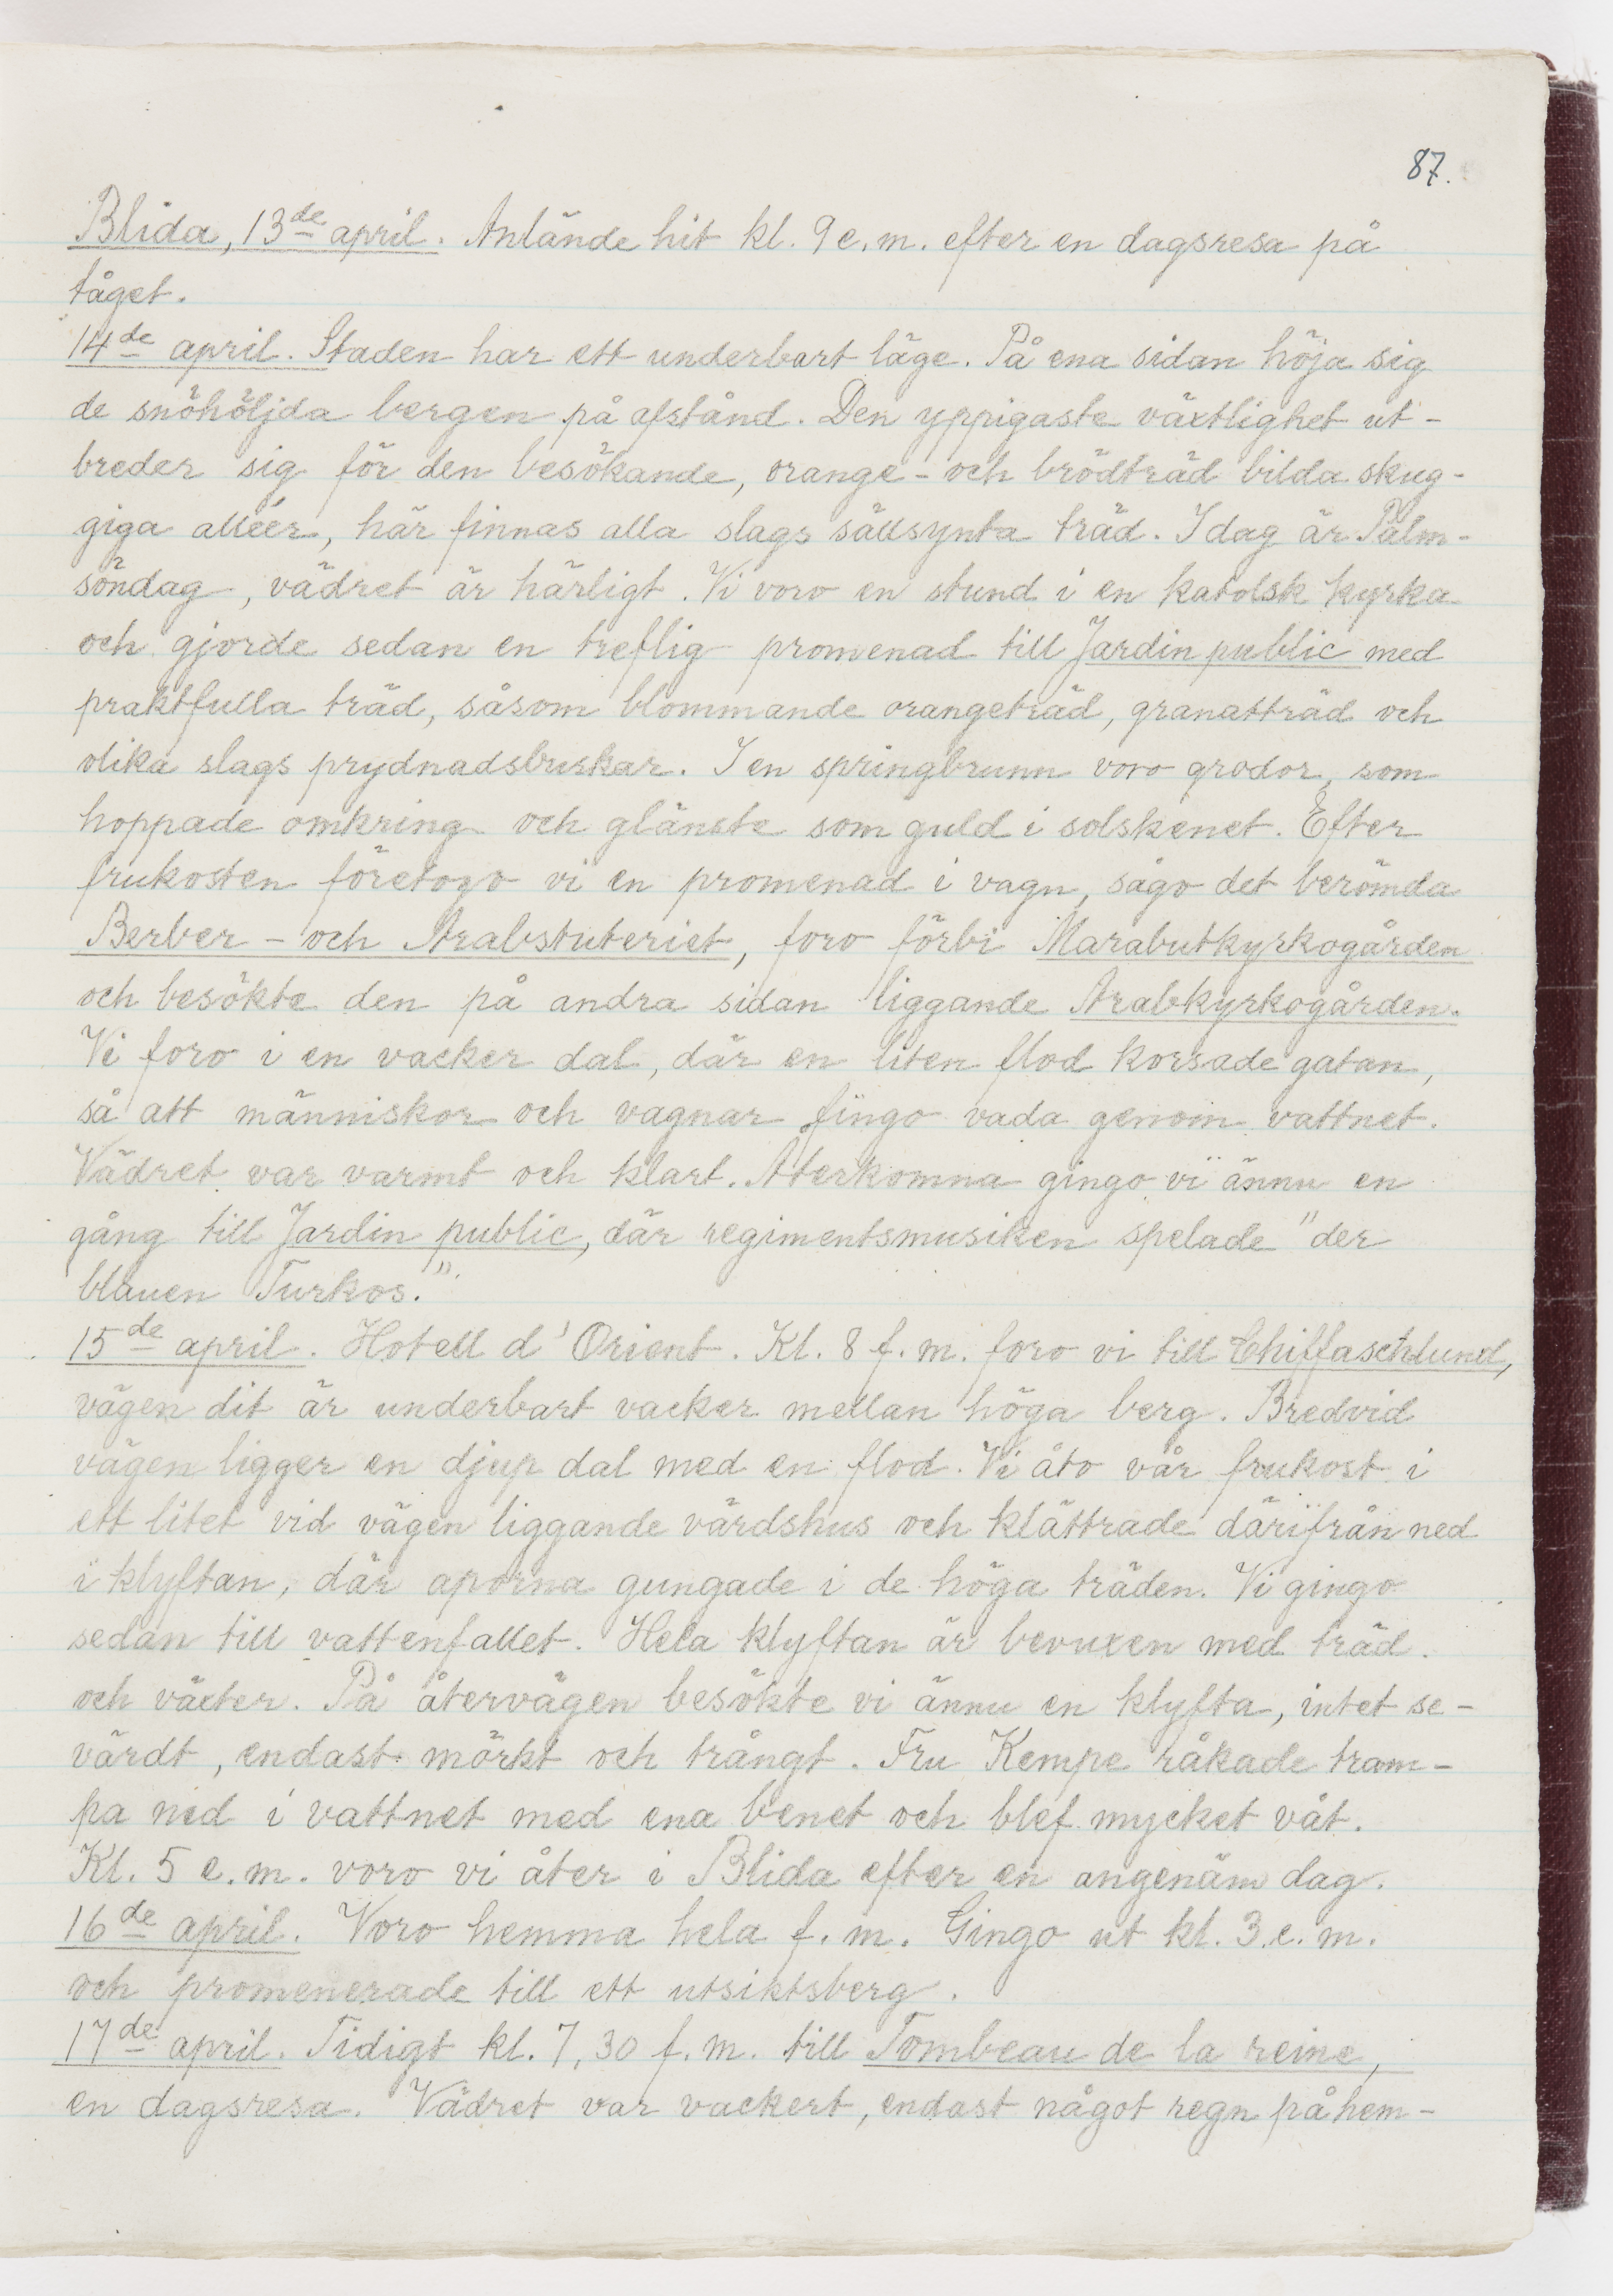 87.
Blida, 13de april. Anlände hit kl. 9 e.m. efter en dagsresa på
tåget.
14de april. Staden har ett underbart läge. På ena sidan höja sig
de snöhöljda bergen på afstånd. Den yppigaste växtlighet ut-
breder sig för den besökande, orange- och brödträd bilda skug-
giga alléer, här finnas alla slags sällsynta träd. I dag är Palm-
söndag, vädret är härligt. Vi voro en stund i en katolsk kyrka
och gjorde sedan en treflig promenad till Jardin public med
praktfulla träd, såsom blommande orangeträd, granatträd och
olika slags prydnadsbuskar. I en springbrunn voro grodor, som
hoppade omkring och glänste som guld i solskenet. Efter
frukosten företogo vi en promenad i vagn, sågo det berömda
Berber- och Arabstuteriet, foro förbi Marabutkyrkogården
och besökte den på andra sidan liggande Arabkyrkogården.
Vi foro i en vacker dal, där en liten flod korsade gatan,
så att människor och vagnar fingo vada genom vattnet.
Vädret var varmt och klart. Återkomna gingo vi ännu en
gång till Jardin public, där regimentsmusiken spelade "der
blauen Turkos."
15de april. Hotell d'Orient. Kl. 8 f.m. foro vi till Chiffaschlund,
vägen dit är underbart vacker mellan höga berg. Bredvid
vägen ligger en djup dal med en flod. Vi åto vår frukost i
ett litet vid vägen liggande värdshus och klättrade därifrån ned
i klyftan, där aporna gungade i de höga träden. Vi gingo
sedan till vattenfallet. Hela klyftan är bevuxen med träd
och växter. På återvägen besökte vi ännu en klyfta, intet se-
värdt, endast mörkt och trångt. Fru Kempe råkade tram-
pa ned i vattnet med ena benet och blef mycket våt.
Kl. 5 e.m. voro vi åter i Blida efter en angenäm dag.
16de april. Voro hemma hela f.m. Gingo ut kl. 3 e.m.
och promenerade till ett utsiktsberg.
17de april. Tidigt kl. 7,30 f.m. till Tombeau de la reine,
en dagsresa. Vädret var vackert, endast något regn på hem-